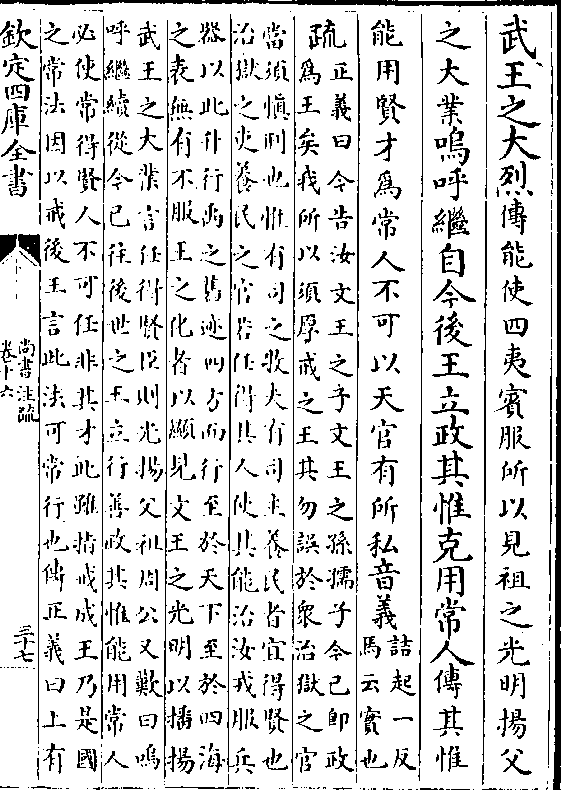 武王之大烈傳能使四夷賓服所以見祖之光明揚父
之大業嗚呼繼自今後王立政其惟克用常人傳其惟
能用賢才為常人不可以天官有所私音義詰起一反
馬云實也
疏正義曰今告汝文王之子文王之孫孺子今已即政
為王矣我所以須厚戒之王其勿誤於衆治獄之官
當須慎刑也惟有司之牧夫有司主養民者宜得賢也
治獄之吏養民之官若任得其人使其能治汝戎服兵
器以此升行禹之舊迹四方而行至於天下至於四海
之表無有不服王之化者以顯見文王之光明以播揚
武王之大業言任得賢臣則光揚父祖周公又歎曰嗚
呼繼續從今已往後世之王立行善政其惟能用常人
必使常得賢人不可任非其才此雖指戒成王乃是國
之常法因以戒後王言此法可常行也傳正義曰上有
欽定四庫全書
尚書注疏
卷十六
三十七